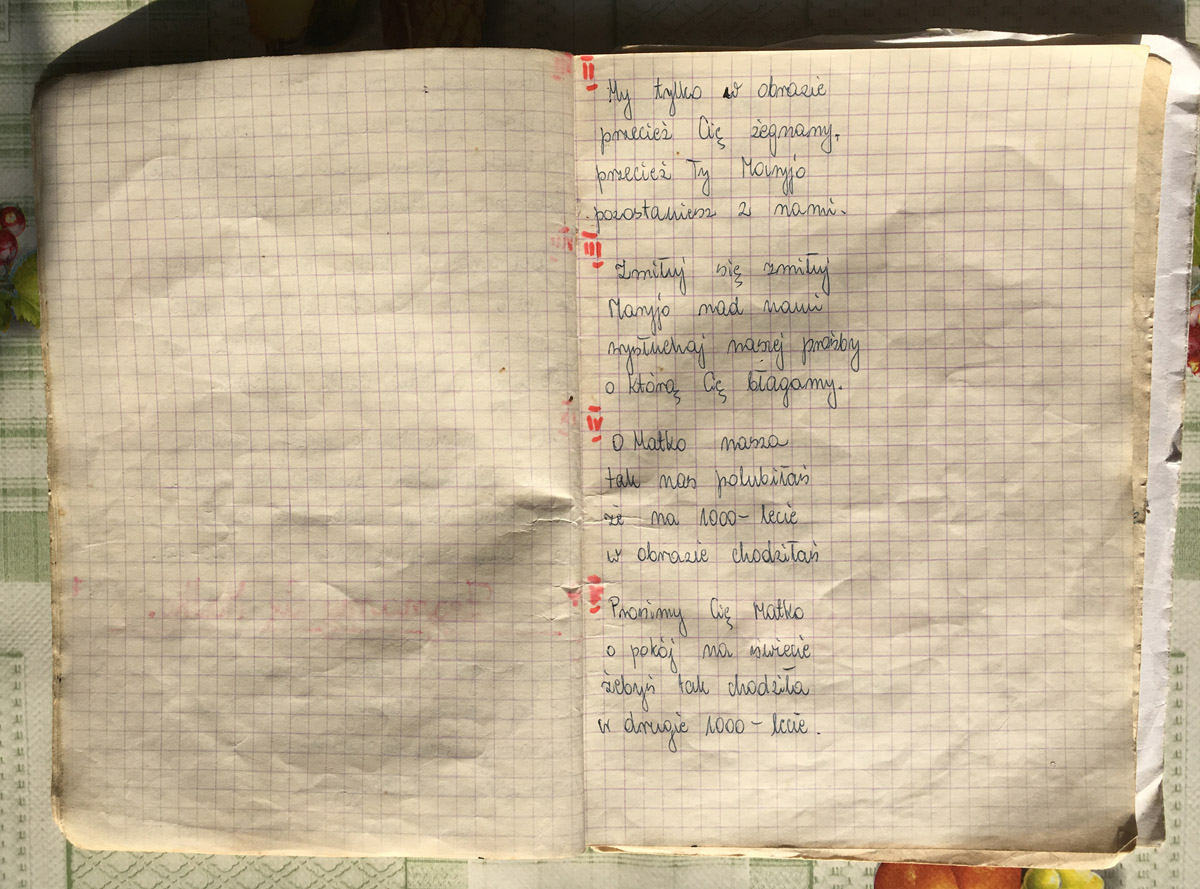 II
My tylko w obrazie
przecież Cię żegnamy,
przecież Ty Maryjo
pozostaniesz z nami.
III
Zmiłuj się zmiłuj
Maryjo nad nami
wysłuchaj naszej prośby
o którą Cię błagamy.
IV
O Matko nasza
tak nas polubiłaś
że na 1000-lecie
w obrazie chodziłaś
V
Prosimy Cię Matko
o pokój na świecie
żebyś tak chodziła
w drugie 1000-lecie.